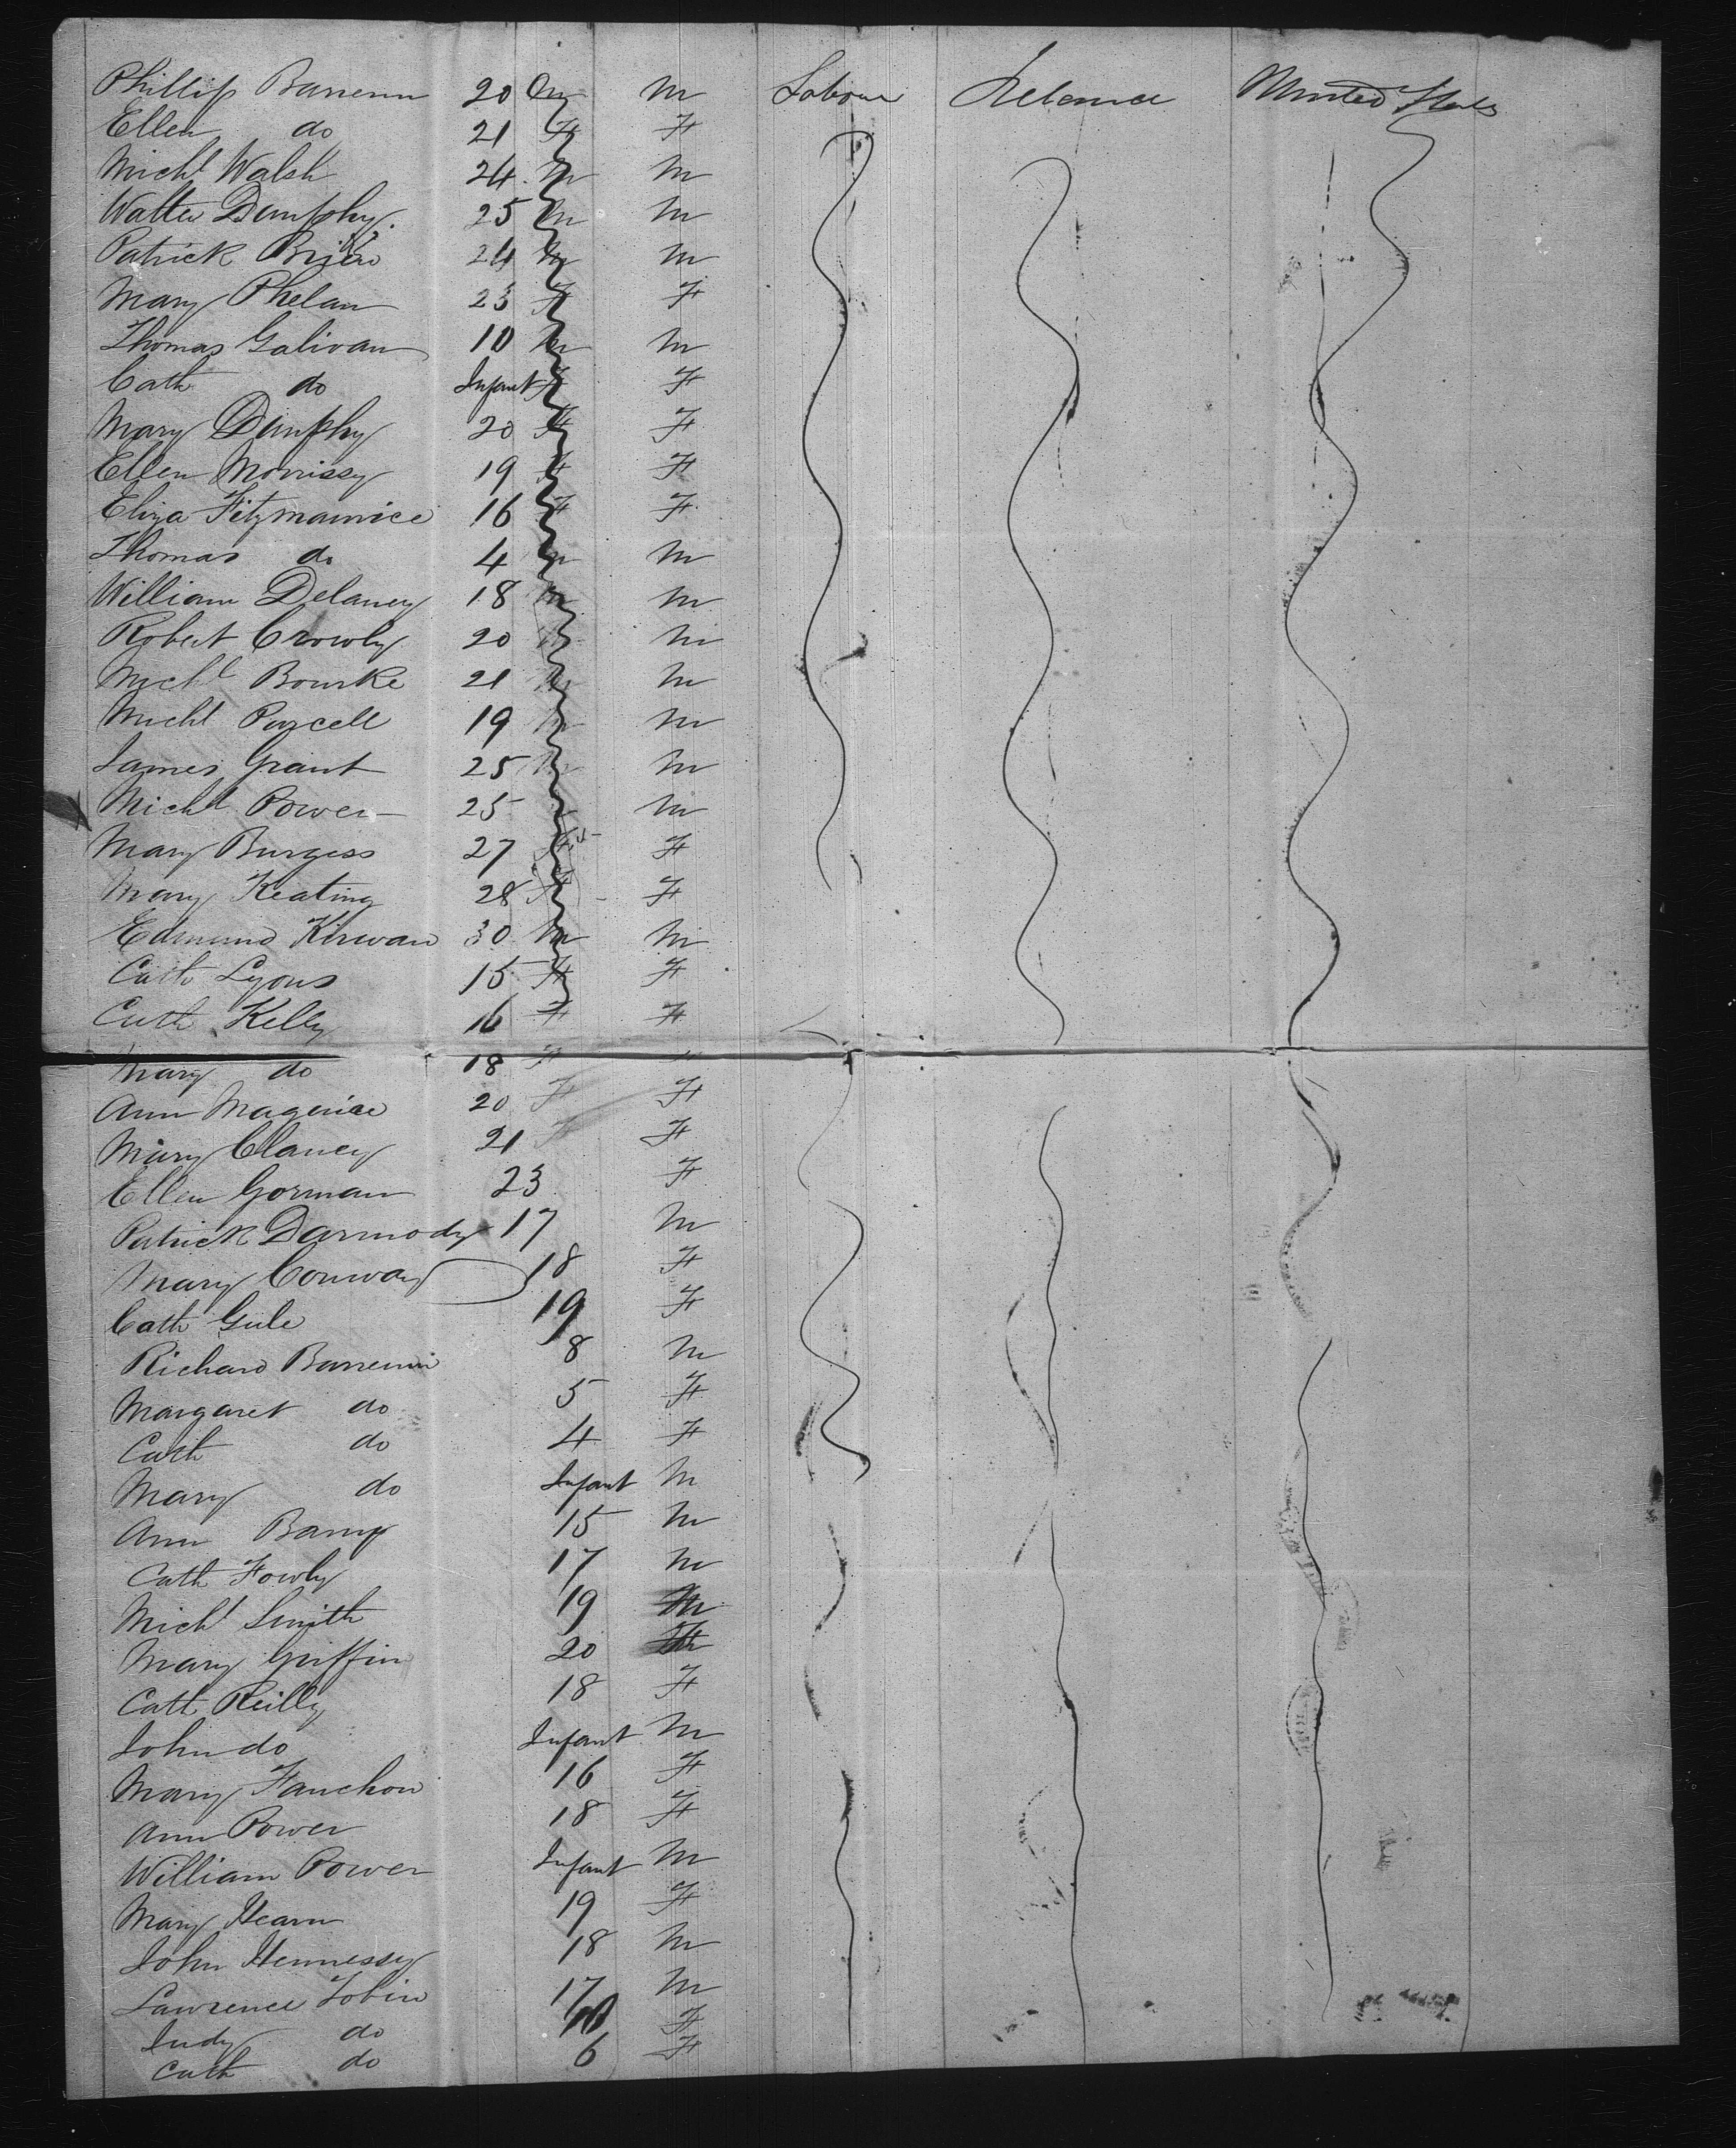 Phillip Barrenn 20 m m Labour Ireland United States
Ellen do 21 F F
Michl Walsh 24 m m
Walter Dunphy 25 m m
Patrick Brien 24 m m
Mary Phelan 23 F F
Thomas Galivan 10 m m
Cath do Infant F F
Mary Dunphy 20 F F
Ellen Morrissy 19 F F
Eliza Fitzmaurice 16 F F
Thomas do 4 m m
William Delaney 18 m m
Robert Crowly 20 m m
Michl Bourke 21 m m
Michl Purcell 19 m m
James Grant 25 m m
Michl Power 25 m
Mary Burgess 27 F F
Mary Keating 28 F F
Edmund Kirwan 30 m m
Cath Lyons 15 F F
Cath Kelly 16 F F
Mary do 18 F
Ann Magenise 20 F F
Mary Clancy 21 F F
Ellen Gorman 23 F
Patrick Darmody 17 m
Mary Conway 18 F
Cath Gule 19 F
Richard Barrenn 8 m
Margaret do 5 F
Cath do 4 F
Mary do Infant m
Ann Barry 15 m
Cath Fowly 17 m
Michl Smith 19 m
Mary Griffin 20
Cath Reilly 18 F
John do Infant m
Mary Fanchon 16 F
Ann Power 18 F
William Power Infant m
Mary Hearn 19 F
John Hennessy 18 m
Lawrence Tobin 17 m
Judy do 10 F
Cath do 6 F